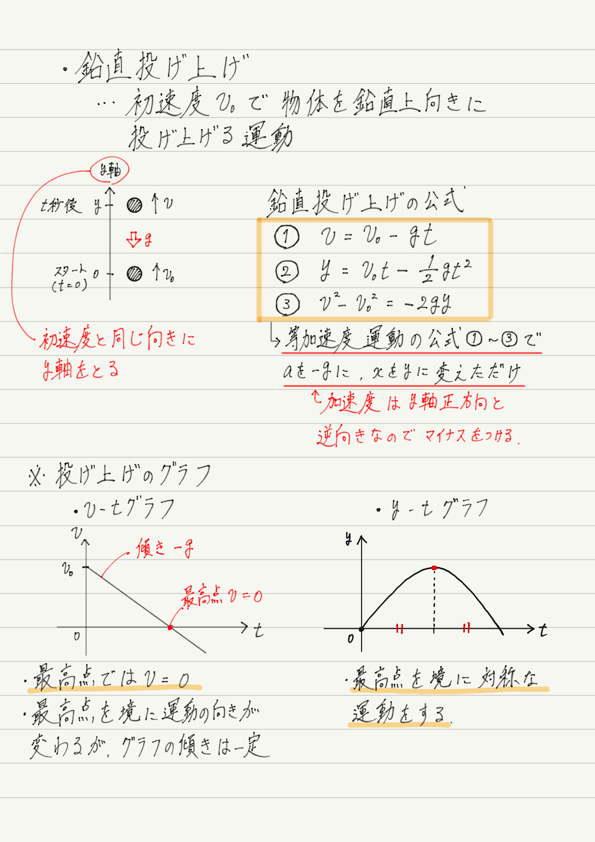 ・鉛直投げ上げ
… 初速度v₀で物体を鉛直上向きに
投げ上げる運動
y軸
t秒後 y ↑v
g
スタート 0 ↑v₀
(t=0)
初速度と同じ向きに
y軸をとる
鉛直投げ上げの公式
① v = v₀ - gt
② y = v₀t - 1/2 gt²
③ v² - v₀² = -2gy
↳ 等加速度運動の公式①~③で
aを-gに、xをyに変えただけ
↑加速度はy軸正方向と
逆向きなのでマイナスをつける.
※ 投げ上げのグラフ
・v-tグラフ
v
v₀
傾き -g
最高点 v=0
0
t
・最高点ではv=0
・最高点を境に運動の向きが
変わるが、グラフの傾きは一定
・y-tグラフ
y
0
t
・最高点を境に対称な
運動をする.